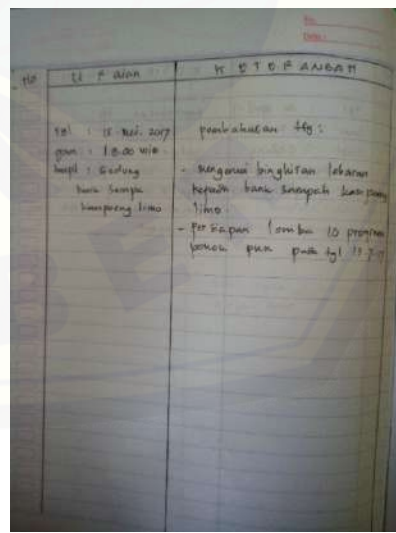 No.
Date:
No
Uraian
KETERANGAN
tgl : 15 mei. 2017
jam : 18.00 wib.
tmpt : Gedung
bank Sampa
kampoeng limo
pembahasan ttg :
- mengenai bingkisan lebaran
kepada bank sampah kampoeng
limo.
- Persiapan lomba 10 program
pokok PKK pada tgl